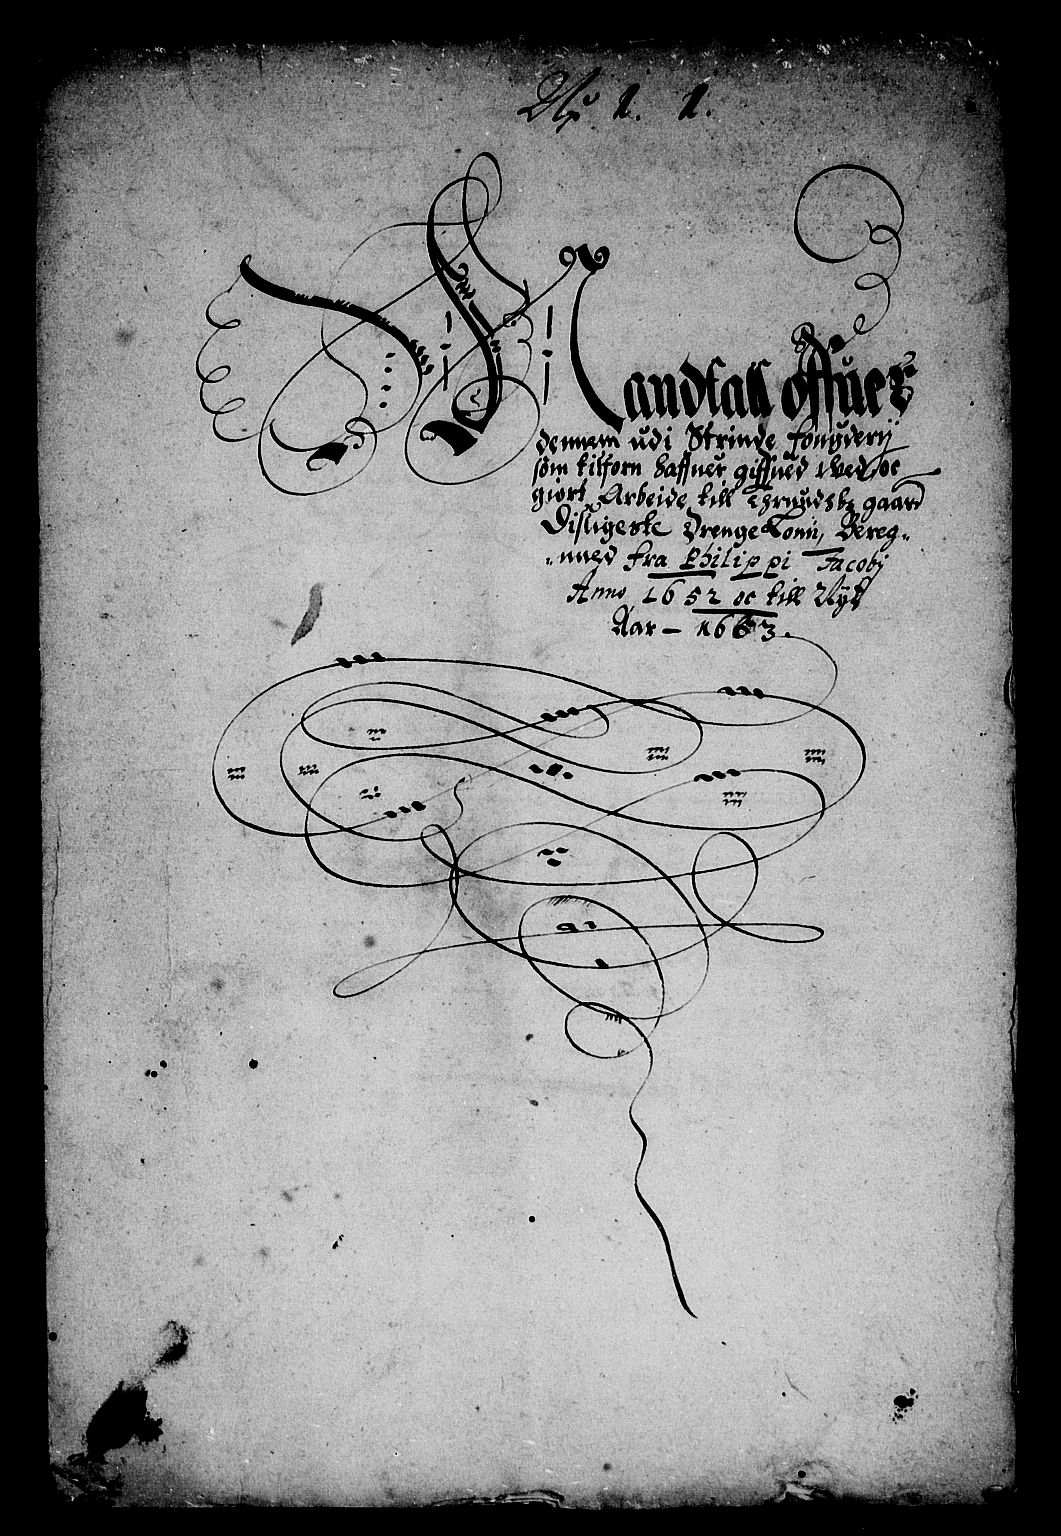 No 1. 1.
Mandtall offuer
dennem udi Strinde fougderij
som tilforn haffuer giffued Wed oc
giort Arbeide till gaard
Disligeste Drenge Bereg„
„nned fra Philippi Jacobj
Anno 1652 oc till Nyt
Aar – 1653.